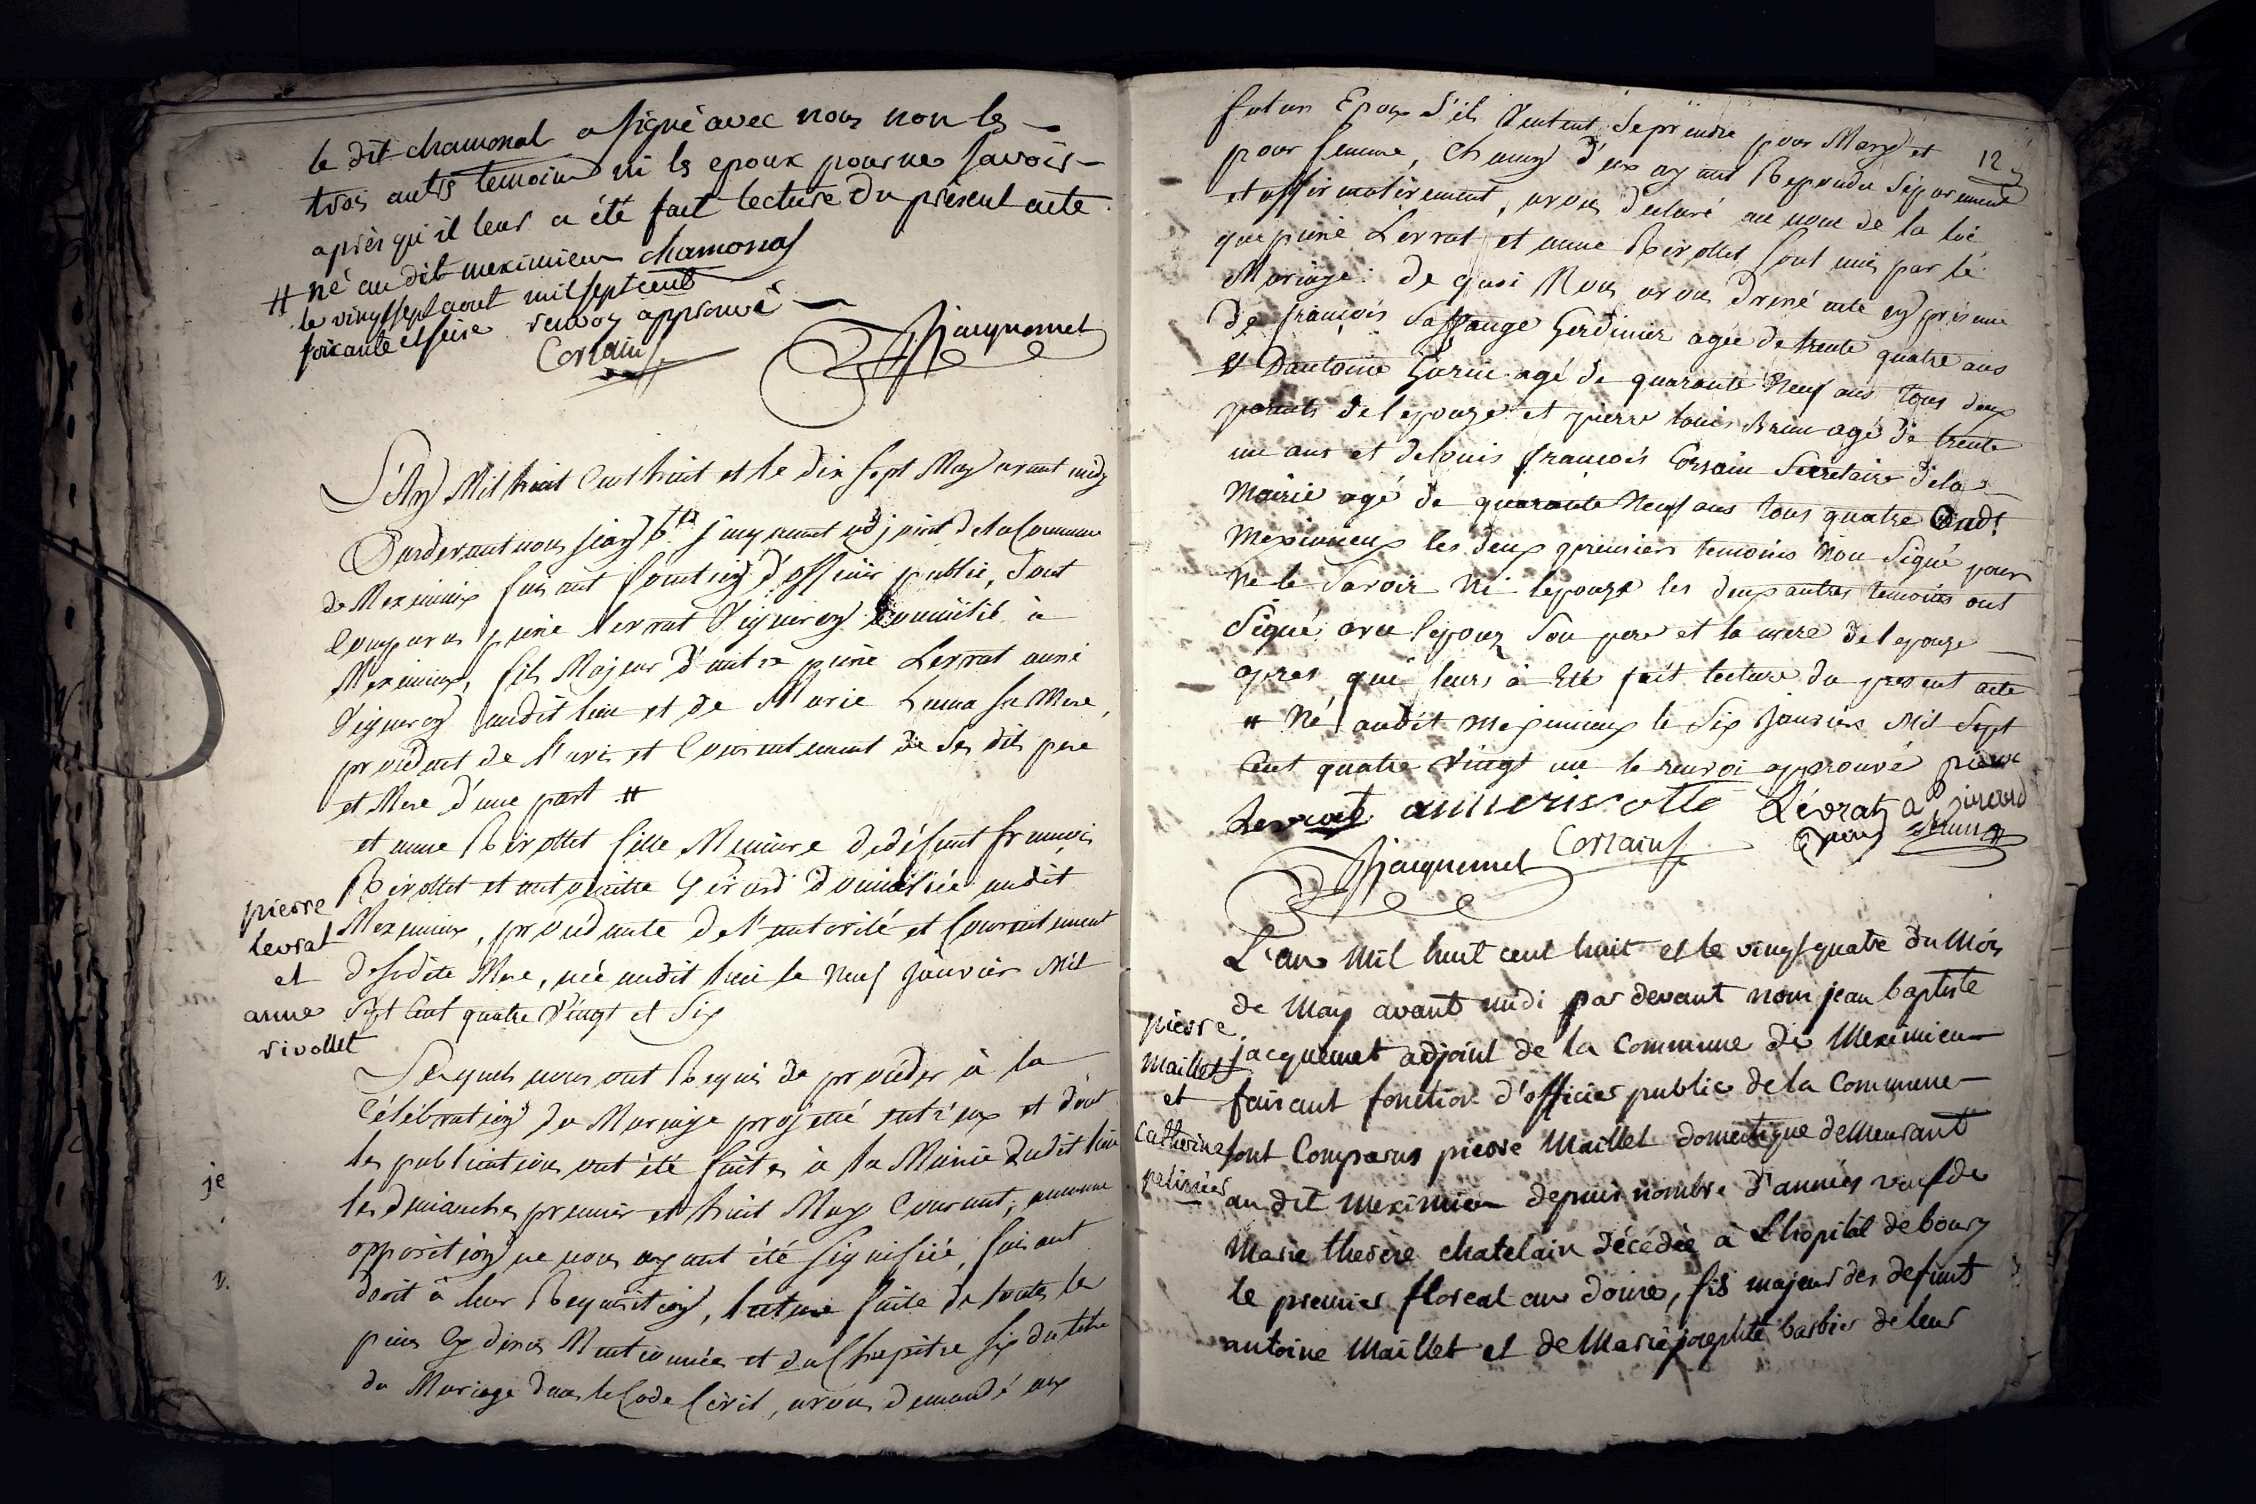 le dit chamonal a signé avec nous non les
trois autres temoins ni les epoux pour ne savoir
après qu'il leur a été fait lecture du présent acte
# né au dit meximieux chamonal
le vingt sept aout mil sept cent
soixante et seize renvoy approuvé
Corsain Jacquemet
L'An Mil huit Cent huit et le dix sept May avant midy
Pardevant nous jean b.te jacquemet adjoint de la Commune
de Meximieux faisant fonction d'officier public, sont
Comparus pierre Levrat Vigneron domicilié à
Meximieux, fils Majeur d'autre pierre Levrat aussi
Vigneron audit lieu et de Marie Luma sa Mere,
procédant de l'avis et Consentement de ses dits pere
et Mere d'une part #
et anne Rivollet fille Mineure de défunt francois
Rivollet et antoinette Girard domiciliée audit
Meximieux, procédante de l'autorité et Consentement
de sadite Mere, née audit lieu le neuf janvier Mil
Sept Cent quatre Vingt et Six
pierre
levrat
et
anne
rivollet
Lesquels nous ont Requis de procéder à la
Célébration du Mariage projetté entr'eux et dont
les publications ont été faites à la Mairie dudit lieu
les dimanches premier et huit May Courant, aucune
opposition ne nous ayant été signifiée, faisant
droit à leur Requisition, lecture faite de toutes les
pieces Cy dessus Mentionnées et du Chapitre six du titre
du Mariage dans le Code Civil, avons demandé aux
je
v.
12
futurs Epoux s'ils Veulent se prendre pour Mary et
pour femme, chacun d'eux ayant Repondu séparement
et affirmativement, avons declaré au nom de la loi
que pierre Levrat et anne Rivollet sont unis par le
Mariage. de quoi Nous avons dressé acte en présence
de françois Saffange Jardinier agée de trente quatre ans
et Dantoine Guerin agé de quarante Neuf ans tous deux
parents de lepouze et pierre louis Brun agé de trente
un ans et de louis françois Corsain Secretaire de la
Mairie agé de quarante Neuf ans tous quatre Aud.t
Meximieux les deux premiers temoins Non Signé pour
Ne le Savoir Ni lepouze les deux autres temoins ont
Signé avec lepoux Son pere et la mere de lepouze
apres que leurs à Eté fait lecture du present acte
# Né audit meximieux le Six Janvier Mil Sept
Cent quatre Vingt un le renvoi approuvé pierre
Levrat anne rivollte Lévrat a Girard
Corsain pierre Brun
Jacquemet
L'an Mil huit cent huit et le vingt quatre du Mois
de May avant midi par devant nous jean baptiste
jacquemet adjoint de la Commune de Meximieux
faisant fonction d'officier public de la Commune
sont Comparus pierre Maillet domestique demeurant
au dit Meximieux depuis nombre d'années veuf de
Marie therèse chatelain décédée à L'hopital de bourg
le premier floréal an douze, fils majeur des defunts
antoine Maillet et de Marie josephte barbier de leur
pierre
Maillet
et
Catherine